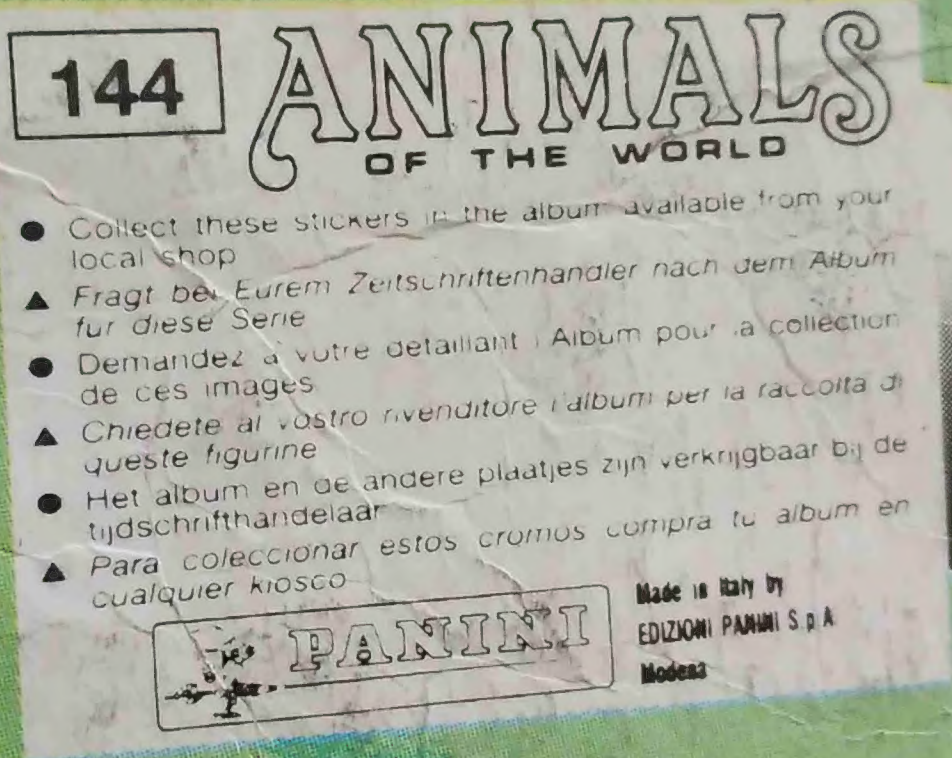 144
ANIMALS
OF THE WORLD
● Collect these stickers in the album available from your
local shop
▲ Fragt bei Eurem Zeitschriftenhandler nach dem Album
fur diese Serie
● Demandez a votre detaillant l Album pour la collection
de ces images
▲ Chiedete al vostro rivenditore l'album per la raccolta di
queste figurine
● Het album en de andere plaatjes zijn verkrijgbaar bij de
tijdschrifthandelaar
▲ Para coleccionar estos cromos compra tu album en
cualquier kiosco
PANINI
Made in Italy by
EDIZIONI PANINI S.p.A.
Modena